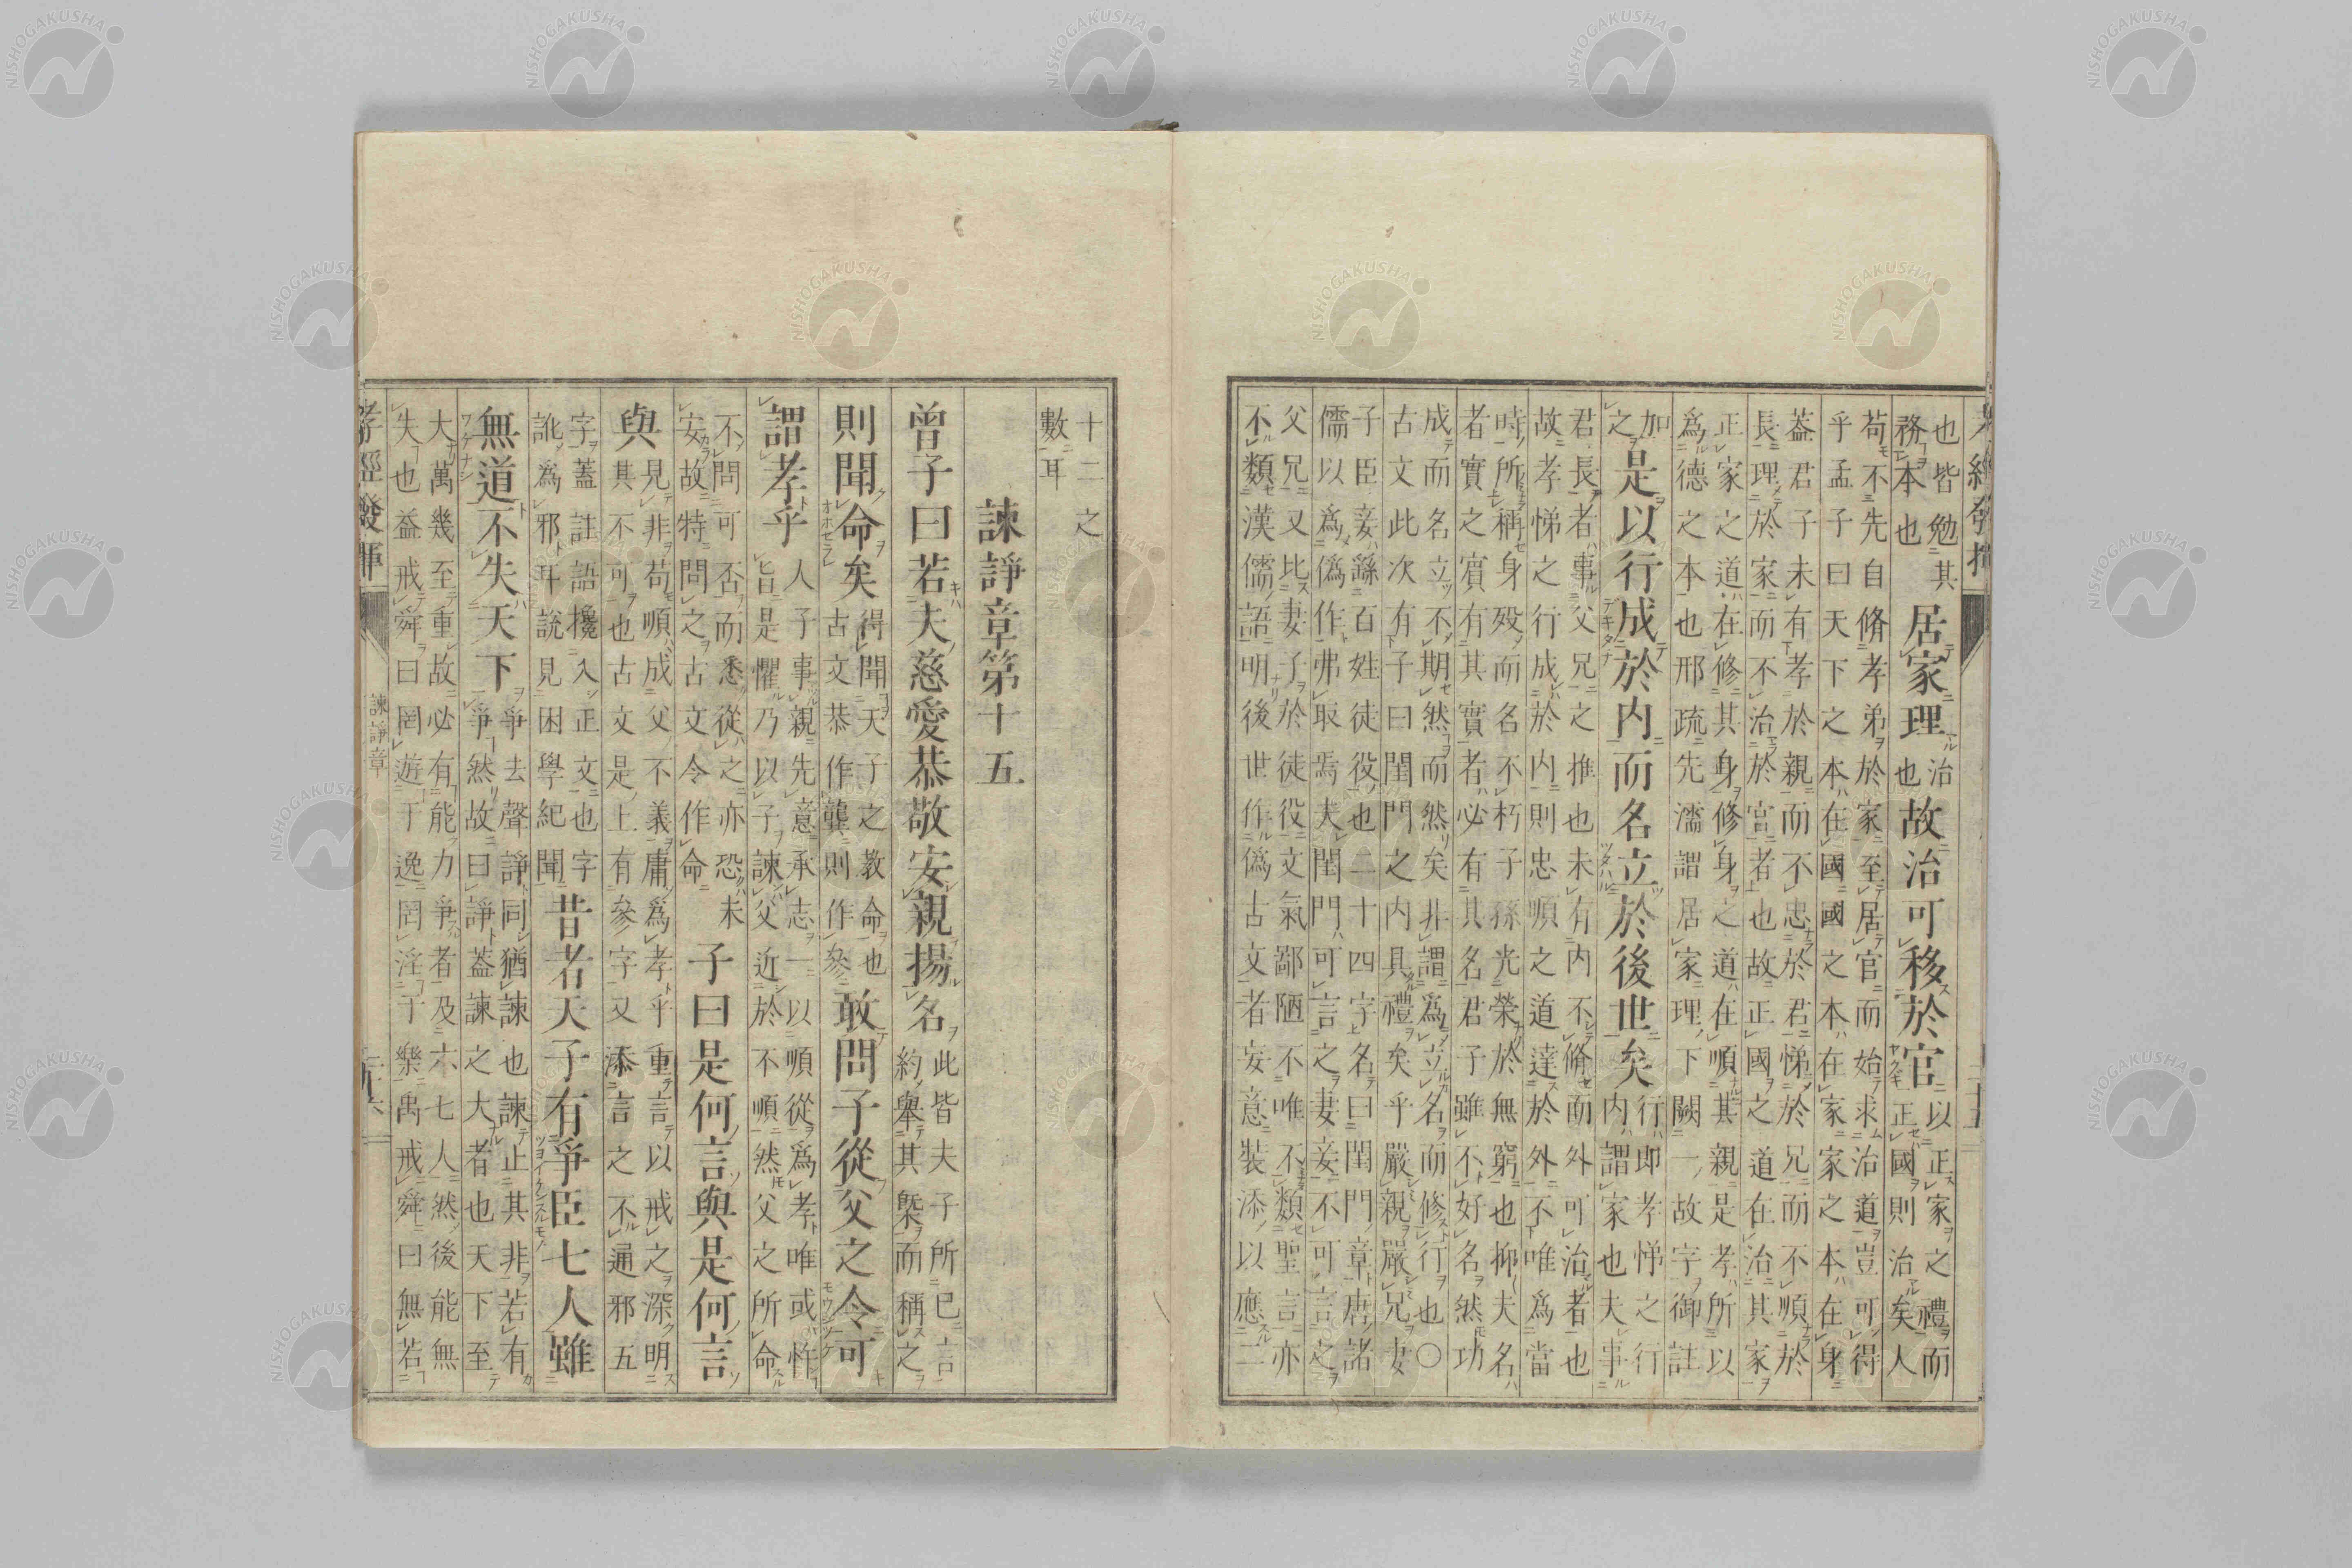 也皆勉其
務本也
居家理
治
也
故治可移於官
以正家之禮而
正國則治矣人
苟不先自脩孝弟於家至居官而始求治道豈可得
乎孟子曰天下之本在國國之本在家家之本在身
蓋君子未有孝於親而不忠於君悌於兄而不順於
長理於家而不治於官者也故正國之道在治其家
正家之道在修其身修身之道在順其親是孝所以
爲德之本也邢疏先濡謂居家理下闕一故字御註
加
之
是以行成於内而名立於後世矣
行即孝悌之行
内謂家也夫事
君長者事父兄之推也未有内不脩而外可治者也
故孝悌之行成於内則忠順之道達於外不唯爲當
時所稱身殁而名不朽子孫光榮於無窮也抑夫名
者實之賓有其實者必有其名君子雖不好名然功
成而名立不期然而然矣非謂爲立名而修行也〇
古文此次有子曰閨門之内具禮矣乎嚴親嚴兄妻
子臣妾繇百姓徒役也二十四字名曰閨門章唐諸
儒以爲僞作弗取焉夫閨門可言之妻妾不可言之
父兄又比妻子於徒役文氣鄙陋不唯不類聖言亦
不類漢儒語明後世作僞古文者妄意裝添以應二
十二之
數耳
諫諍章第十五
曾子曰若夫慈愛恭敬安親揚名
此皆夫子所已言
約舉其槩而稱之
則聞命矣
得聞天子之教命也
古文恭作龔則作參
敢問子從父之令可
謂孝乎
人子事親先意承志一以順從爲孝唯或忤
旨是懼乃以子諫父近於不順然父之所命
不問可否而悉從之亦恐未
安故特問之古文令作命
子曰是何言與是何言
與
見非苟順成父不義庸爲孝乎重言以戒之深明
其不可也古文是上有參字又添言之不通邪五
字蓋註語攙入正文也字
訛爲邪耳説見困學紀聞
昔者天子有爭臣七人雖
無道不失天下
爭去聲諍同猶諫也諫止其非若有
爭然故曰諍蓋諫之大者也天下至
大萬幾至重故必有能力爭者及六七人然後能無
失也益戒舜曰罔遊于逸罔淫于樂禹戒舜曰無若
孝經發揮
諫諍章